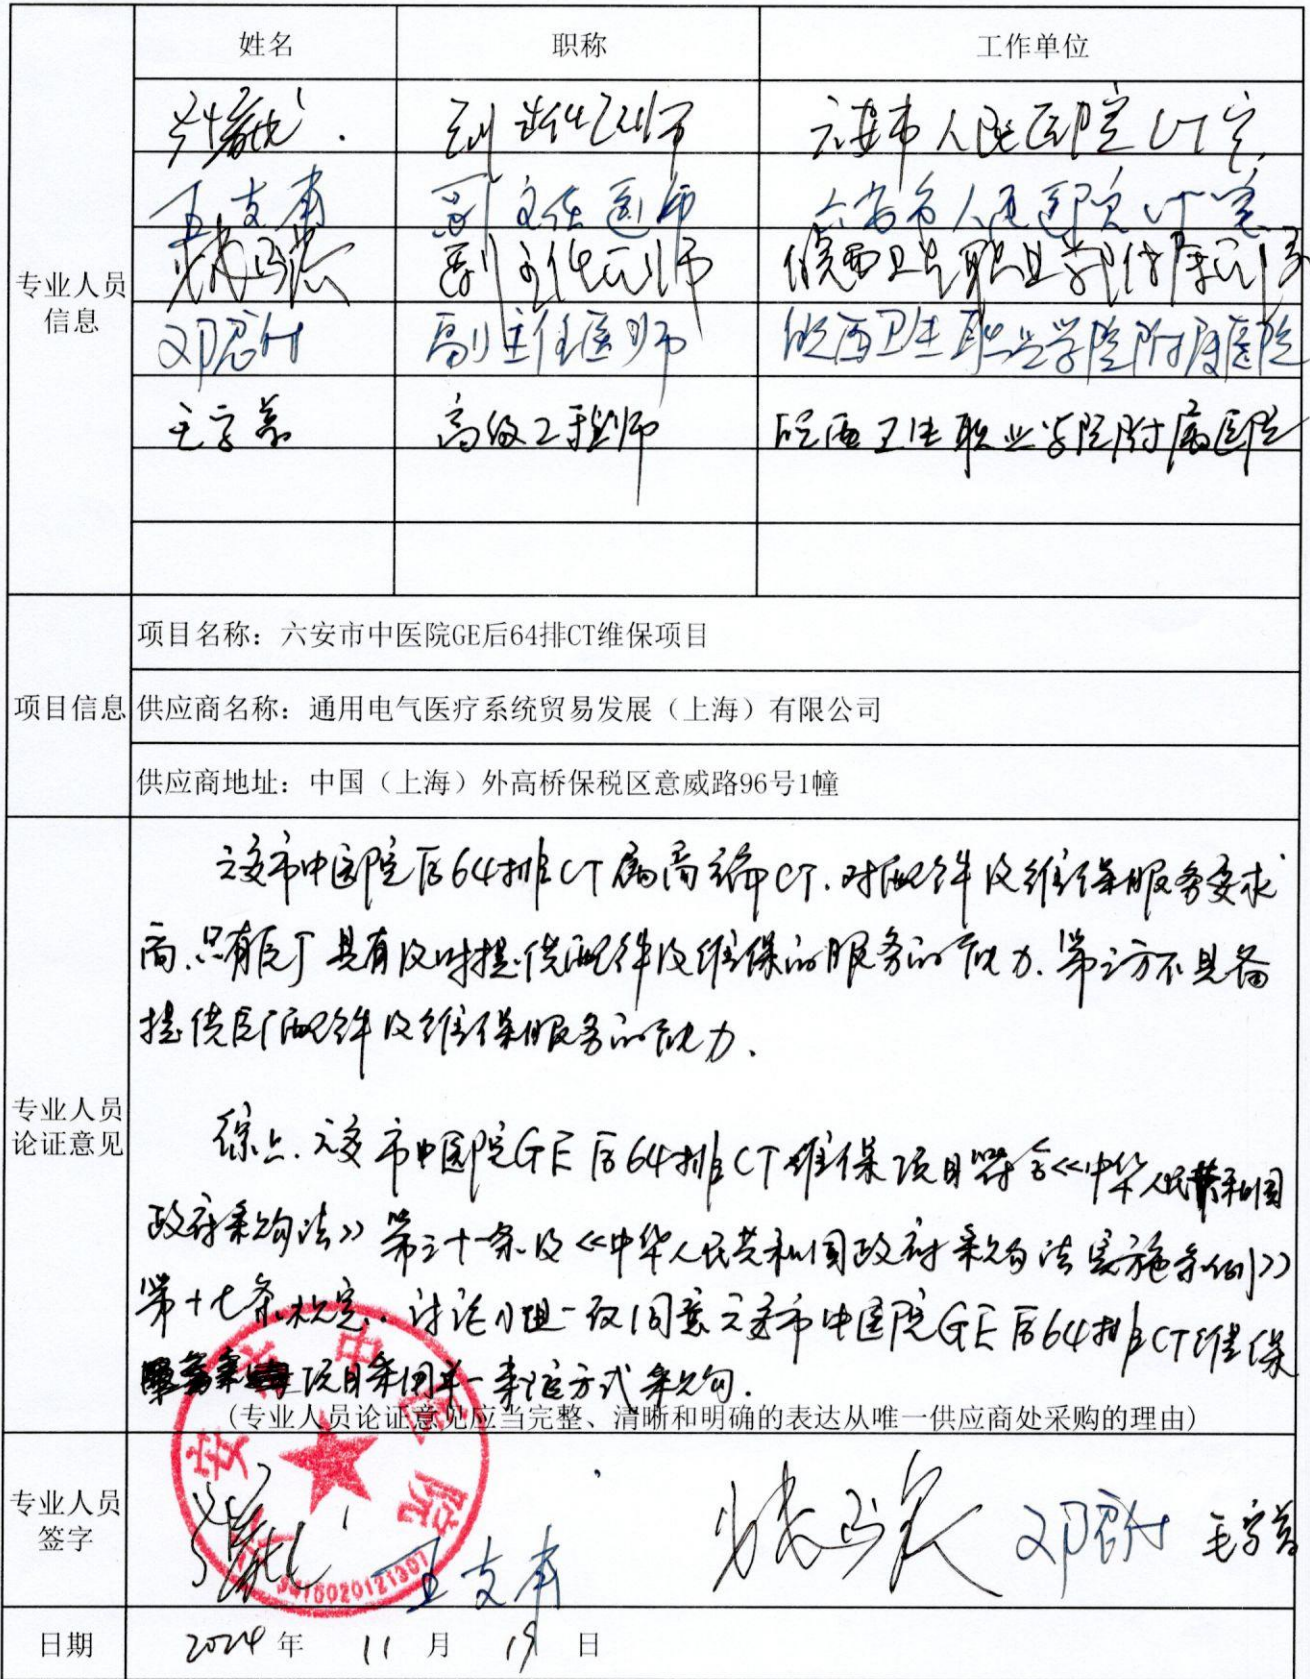 姓名 职称 工作单位
副主任医师 六安市人民医院CT室
王支南 副主任医师 六安市人民医院CT室
副主任医师 皖西卫生职业学院附属医院
专业人员
信息
邓君付 副主任医师 皖西卫生职业学院附属医院
高级工程师 皖西卫生职业学院附属医院
项目名称：六安市中医院GE后64排CT维保项目
项目信息
供应商名称：通用电气医疗系统贸易发展（上海）有限公司
供应商地址：中国（上海）外高桥保税区意威路96号1幢
六安市中医院后64排CT属高端CT.对配件及维保服务要求
高.只有原厂具有及时提供配件及维保的服务的能力.第三方不具备
提供原厂配件及维保服务的能力.
专业人员
论证意见
综上.六安市中医院GE后64排CT维保项目符合《中华人民共和国
政府采购法》第三十一条及《中华人民共和国政府采购法实施条例》
第十七条规定..讨论小组一致同意六安市中医院GE后64排CT维保
项目采用单一来源方式采购.
(专业人员论证意见应当完整、清晰和明确的表达从唯一供应商处采购的理由)
六安市中医院
专业人员
签字
王支南 邓君付
3416020121307
日期 2024年 11月 19日